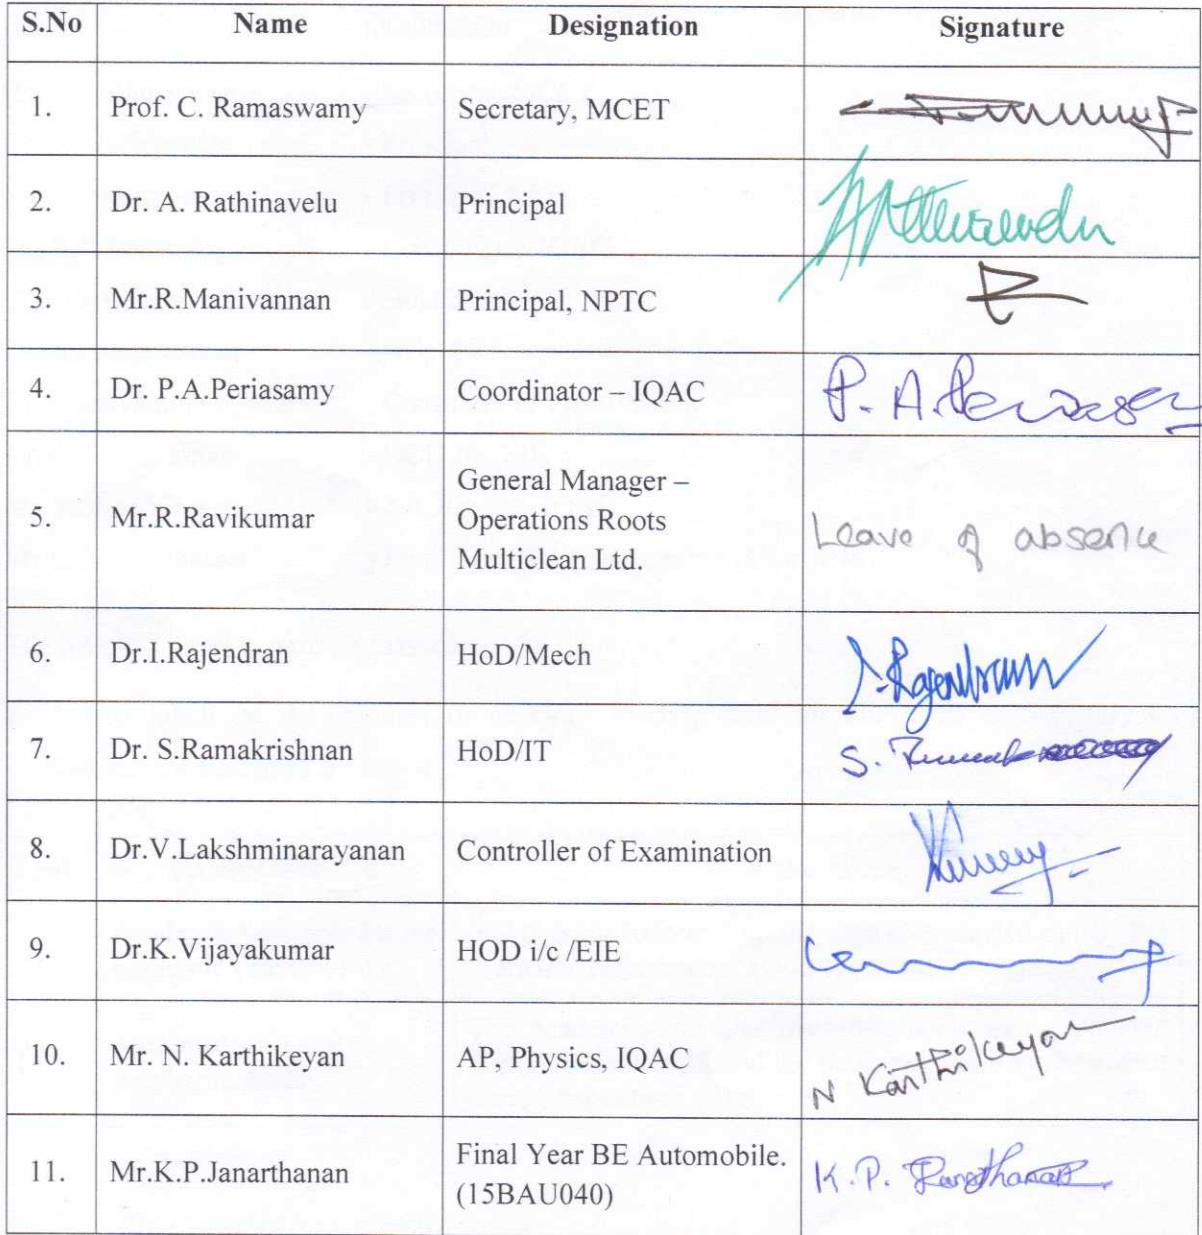 S.No Name Designation Signature
1. Prof. C. Ramaswamy Secretary, MCET
2. Dr. A. Rathinavelu Principal
3. Mr.R.Manivannan Principal, NPTC
4. Dr. P.A.Periasamy Coordinator – IQAC P. A. Periasamy
General Manager –
5. Mr.R.Ravikumar Operations Roots Leave of absence
Multiclean Ltd.
6. Dr.I.Rajendran HoD/Mech I. Rajendran
7. Dr. S.Ramakrishnan HoD/IT S.
8. Dr.V.Lakshminarayanan Controller of Examination
9. Dr.K.Vijayakumar HOD i/c /EIE
10. Mr. N. Karthikeyan AP, Physics, IQAC N Karthikeyan
11. Mr.K.P.Janarthanan Final Year BE Automobile. K.P.
(15BAU040)